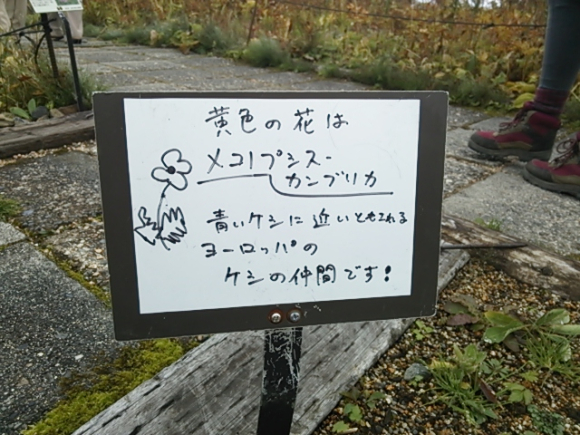 黄色の花は
メコノプシス・
カンブリカ
青いケシに近いともされる
ヨーロッパの
ケシの仲間です!